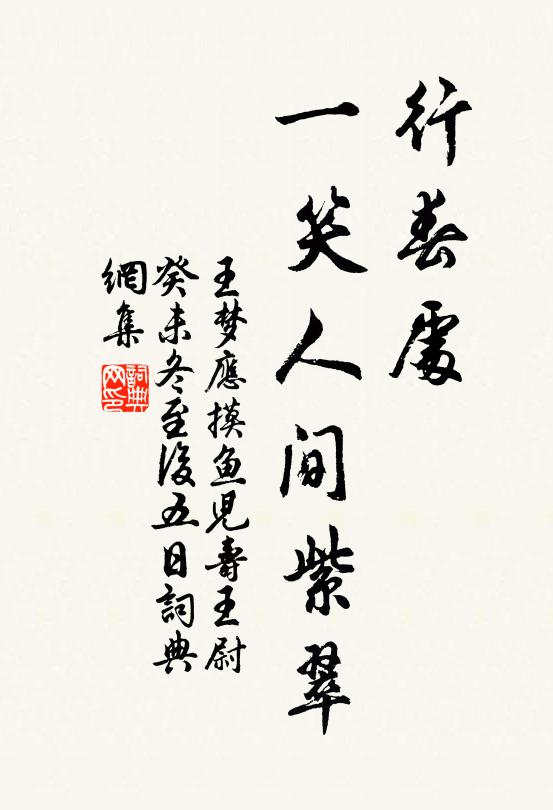 行春處
一笑人间紫翠
王梦應摸鱼児壽王尉
癸未冬至後五日詞典
網集
詞典
网印